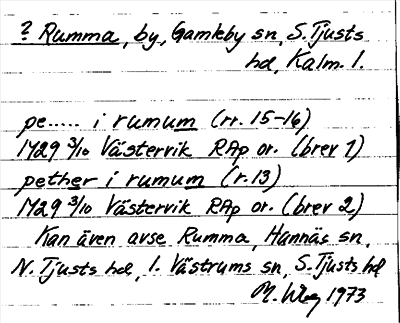 ? Rumma, by, Gamleby sn, S. Tjusts
hd, Kalm. l.
pe..... i rumum (rr. 15-16)
1429 3/10 Västervik RAp or. (brev 1)
pether i rumum (r.13)
1429 3/10 Västervik RAp or. (brev 2)
Kan även avse Rumma, Hannäs sn,
N. Tjusts hd, l. Västrums sn, S. Tjusts hd
M. 1973